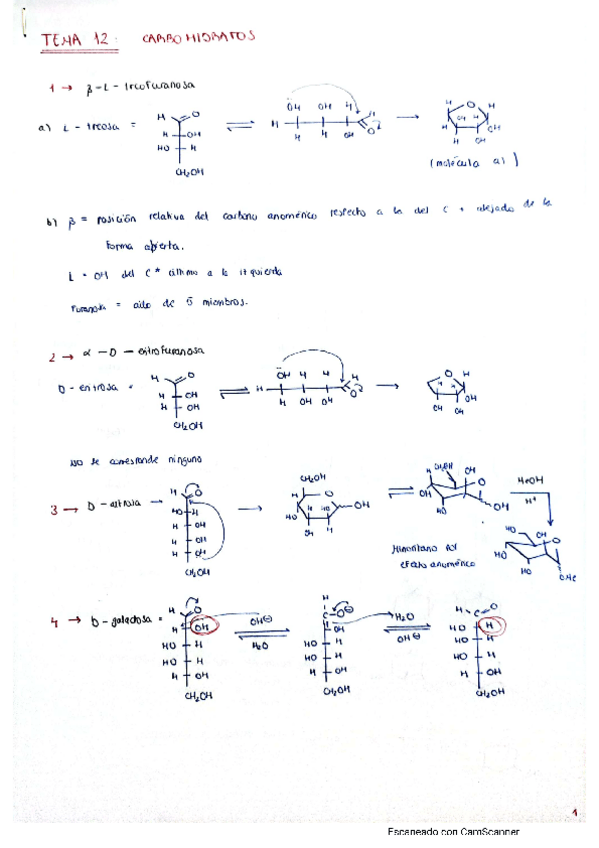 TEMA 12: CARBOHIDRATOS
1 → β-L-treofuranosa
a) L-treosa =
H O
H OH
HO H
CH2OH
OH OH H H
H H H OH O
O H
H OH H
H OH
H OH
(molécula a)
b) β = posición relativa del carbono anomérico respecto a la del C + alejado de la
forma abierta.
L = OH del C* último a la izquierda
Furanosa = anillo de 5 miembros.
2 → α-D-eritrofuranosa
D-eritrosa =
H O
H OH
H OH
CH2OH
OH H H H
H H OH OH O
O H
H H OH
OH OH
No se corresponde ninguno
3 → D-altrosa →
H O
HO H
H OH
H OH
H OH
CH2OH
CH2OH
H O
H HO OH
HO
OH H
OH
O
OH OH
HO
MeOH
H+
Minoritario por
efecto anomérico
HO OH
HO O
HO
OMe
4 → D-galactosa =
H O
H OH
HO H
HO H
H OH
CH2OH
OH⊖
H2O
H
C O⊖
OH
HO H
HO H
H OH
CH2OH
H2O
OH⊖
H C O
HO H
HO H
HO H
H OH
CH2OH
1
Escaneado con CamScanner